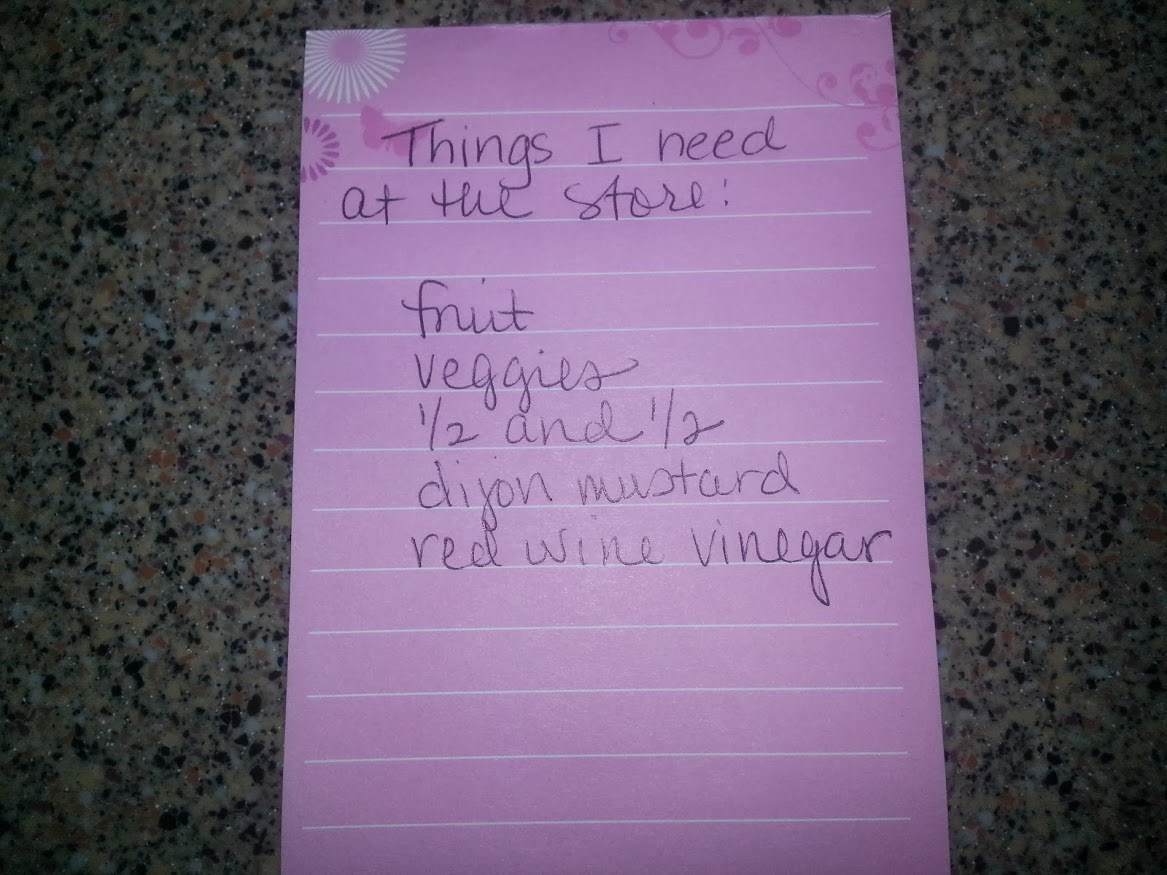 Things I need
at the store:
fruit
veggies
1/2 and 1/2
dijon mustard
red wine vinegar